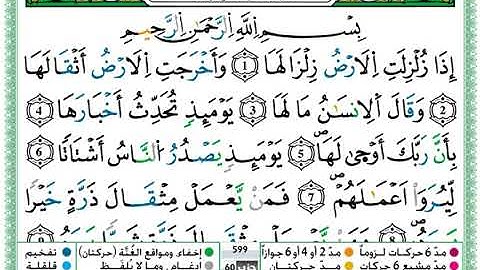 بِسْمِ اللَّهِ الرَّحْمَٰنِ الرَّحِيمِ
إِذَا زُلْزِلَتِ اِ۬لَارْضُ زِلْزَالَهَا ① وَأَخْرَجَتِ اِ۬لَارْضُ أَثْقَالَهَا
② وَقَالَ اَ۬لِانسَٰنُ مَا لَهَا ③ يَوْمَئِذٖ تُحَدِّثُ أَخْبَارَهَا ④
بِأَنَّ رَبَّكَ أَوْحَىٰ لَهَا ⑤ يَوْمَئِذٖ يَصْدُرُ اُ۬لنَّاسُ أَشْتَاتاٗ ⑥
لِّيُرَوَاْ اَعْمَٰلَهُمْ ⑦ فَمَنْ يَّعْمَلْ مِثْقَالَ ذَرَّةٍ خَيْراٗ
مدّ 6 حركات لزوماً مدّ 2 أو 4 أو 6 جوازاً 599 إخفاء، ومواقع الغُنَّة (حركتان) تفخيم
مدّ مشبع 6 حركات مدّ حركتان 60 إدغام، وما لا يُلفَظ قلقلة